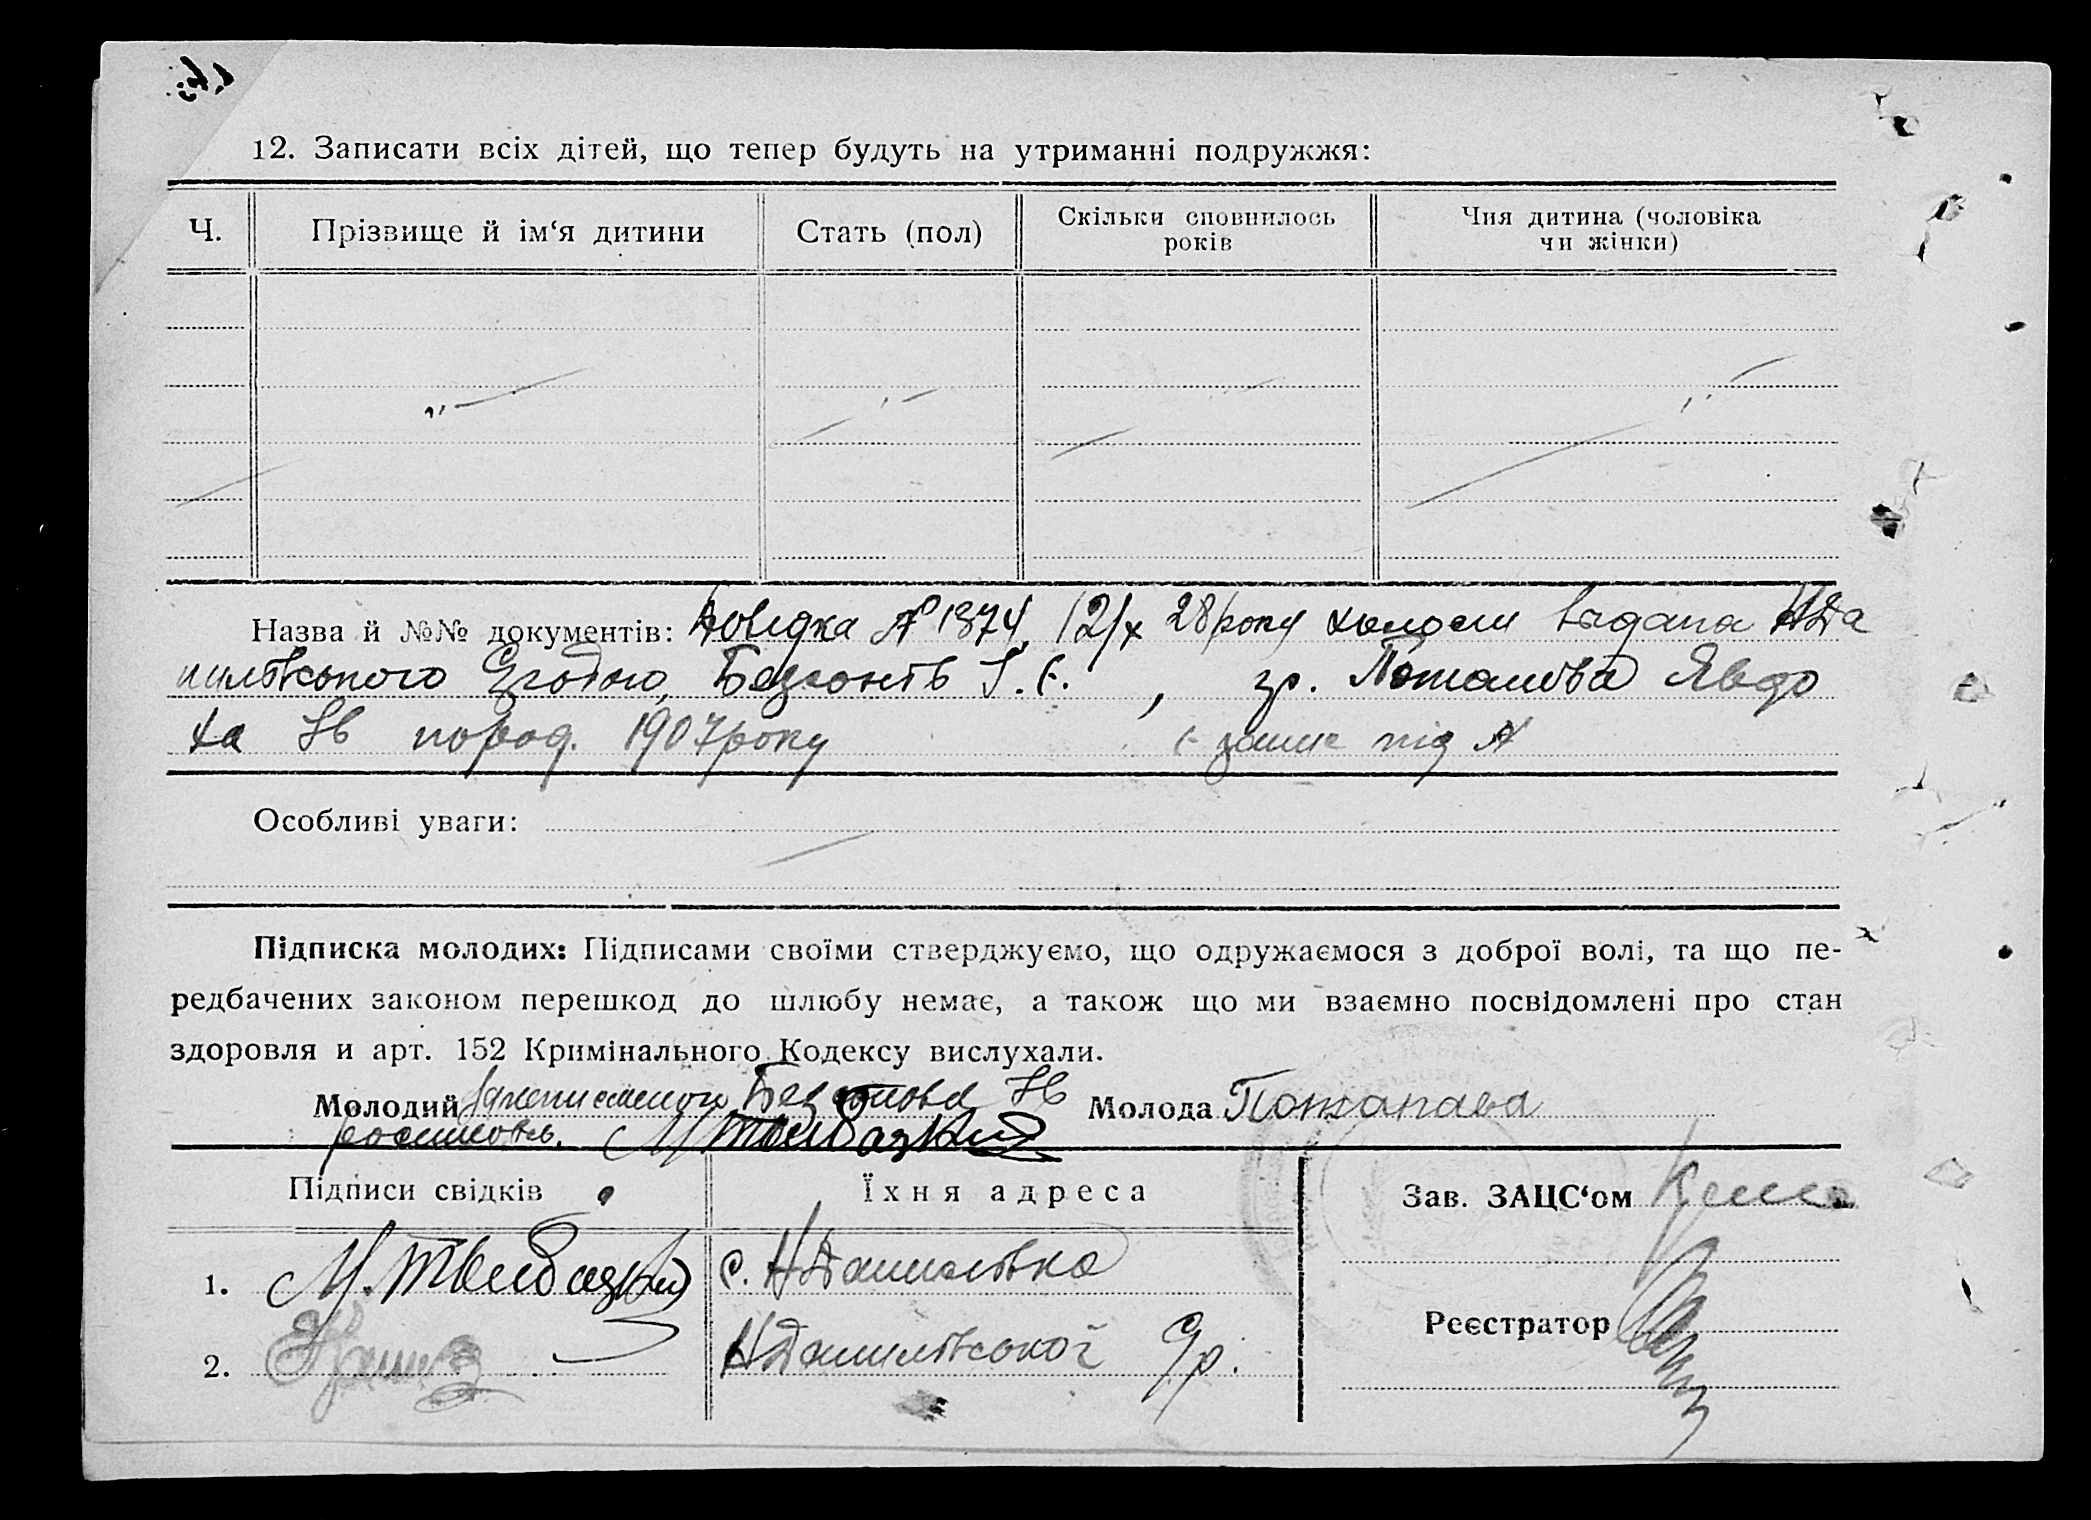 12. Записати всіх дітей, що тепер будуть на утриманні подружжя:
Ч. Прізвище й ім‘я дитини Стать (пол) Скільки сповнилось років Чия дитина (чоловіка чи жінки)
Назва й №№ документів: Довідка № 1374, 12/х 28 року видана НДа
нилівського Безконтв зр. Потапова Явдо
ха пород. 1907 року є запис під №
Особливі уваги:
Підписка молодих: Підписами своїми стверджуємо, що одружаємося з доброї волі, та що пе-
редбачених законом перешкод до шлюбу немає, а також що ми взаємно посвідомлені про стан
здоровля и арт. 152 Кримінального Кодексу вислухали.
Молодий Молода Потапава
Підписи свідків Їхня адреса Зав. ЗАЦС‘ом
1. с. НДанилівка
Реєстратор
2. НДанилівської с/р.